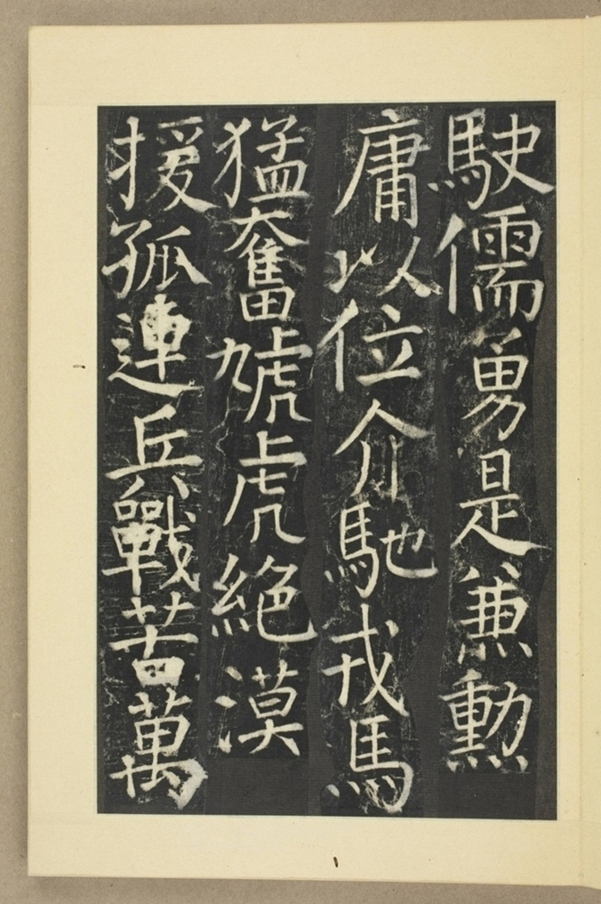 駛儒勇是兼勳
庸以位介馳戎馬
猛奮虓虎絕漠
援孤連兵戰苦萬